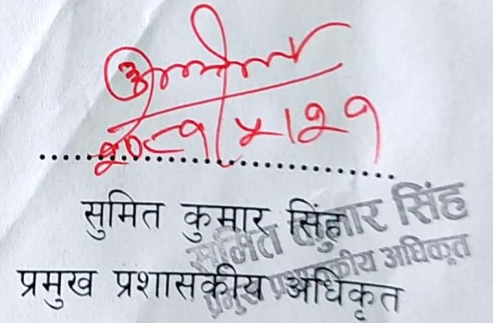 २०८१/५/२१
सुमित कुमार सिंह
प्रमुख प्रशासकीय अधिकृत
सुमित कुमार सिंह
प्रमुख प्रशासकीय अधिकृत